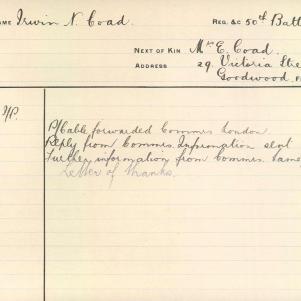 NAME Irwin N. Coad. REG. &C 50th Batt
NEXT OF KIN Mr E. Coad.
ADDRESS 29. Victoria Stre
Goodwood
P/Cable forwarded Commrs London
Reply from Commrs. Information sent
Further information from Commrs. same
Letter of thanks.